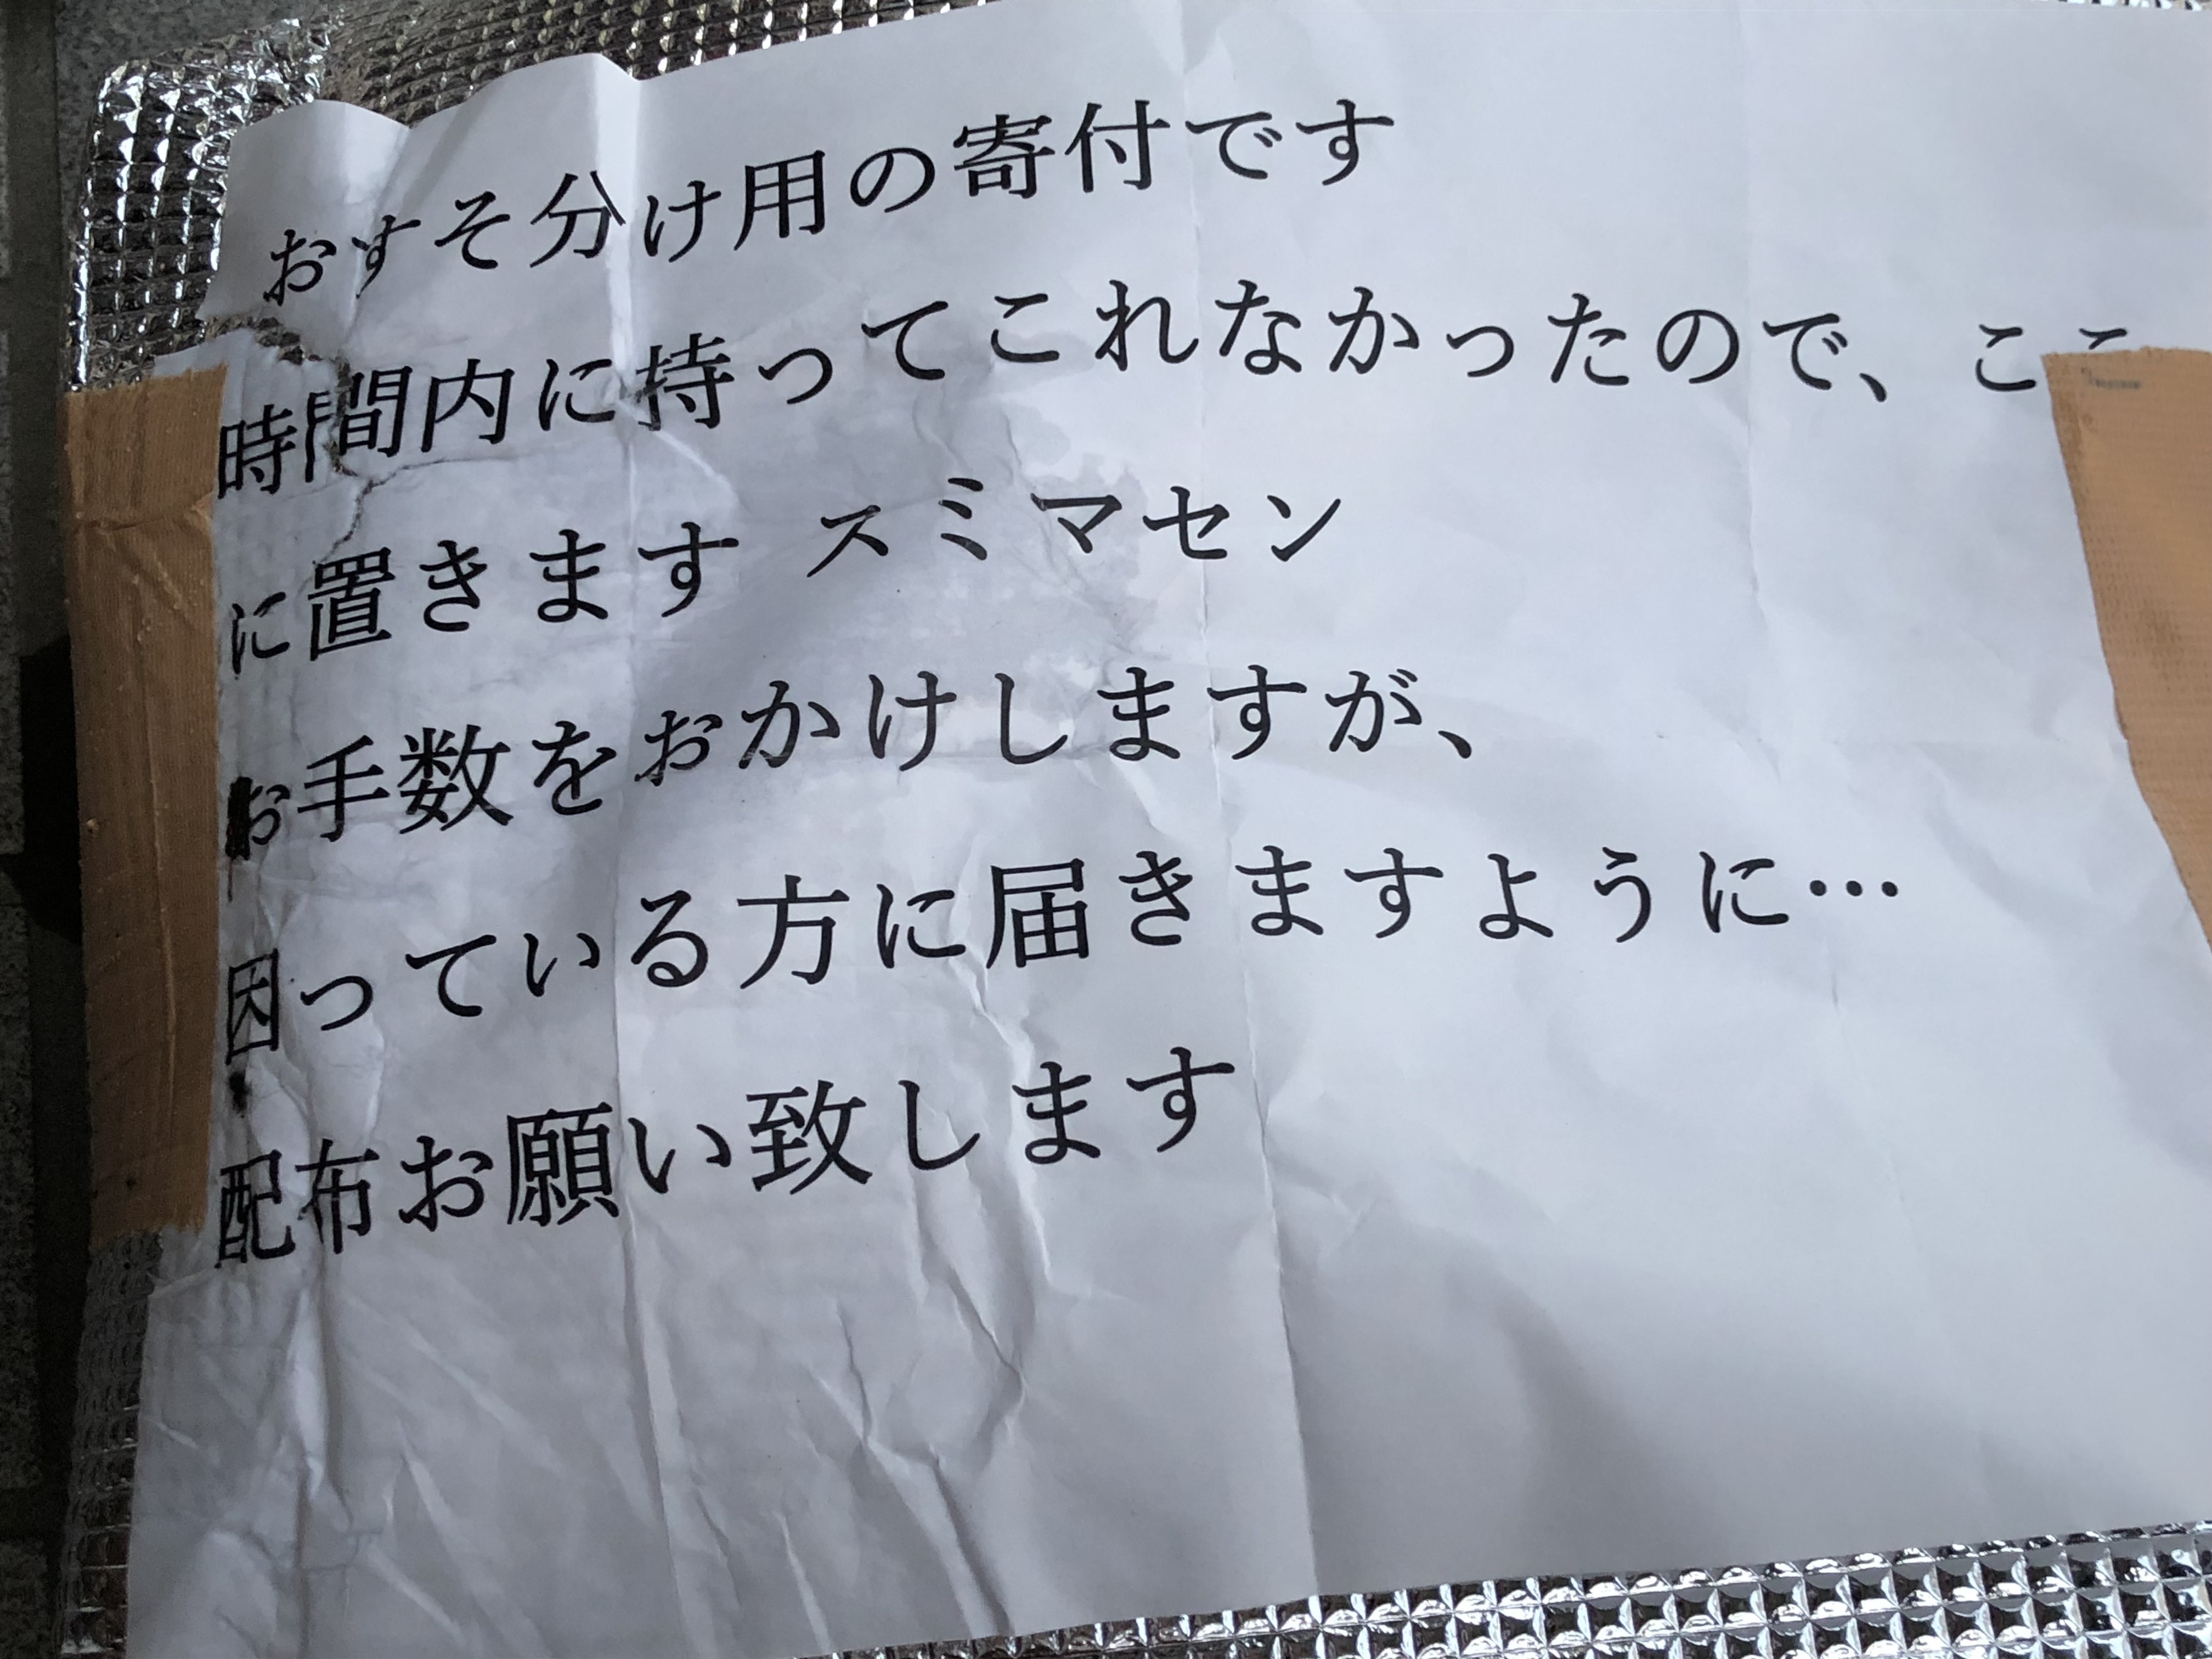 おすそ分け用の寄付です
時間内に持ってこれなかったので、ここ
に置きます スミマセン
お手数をおかけしますが、
困っている方に届きますように…
配布お願い致します